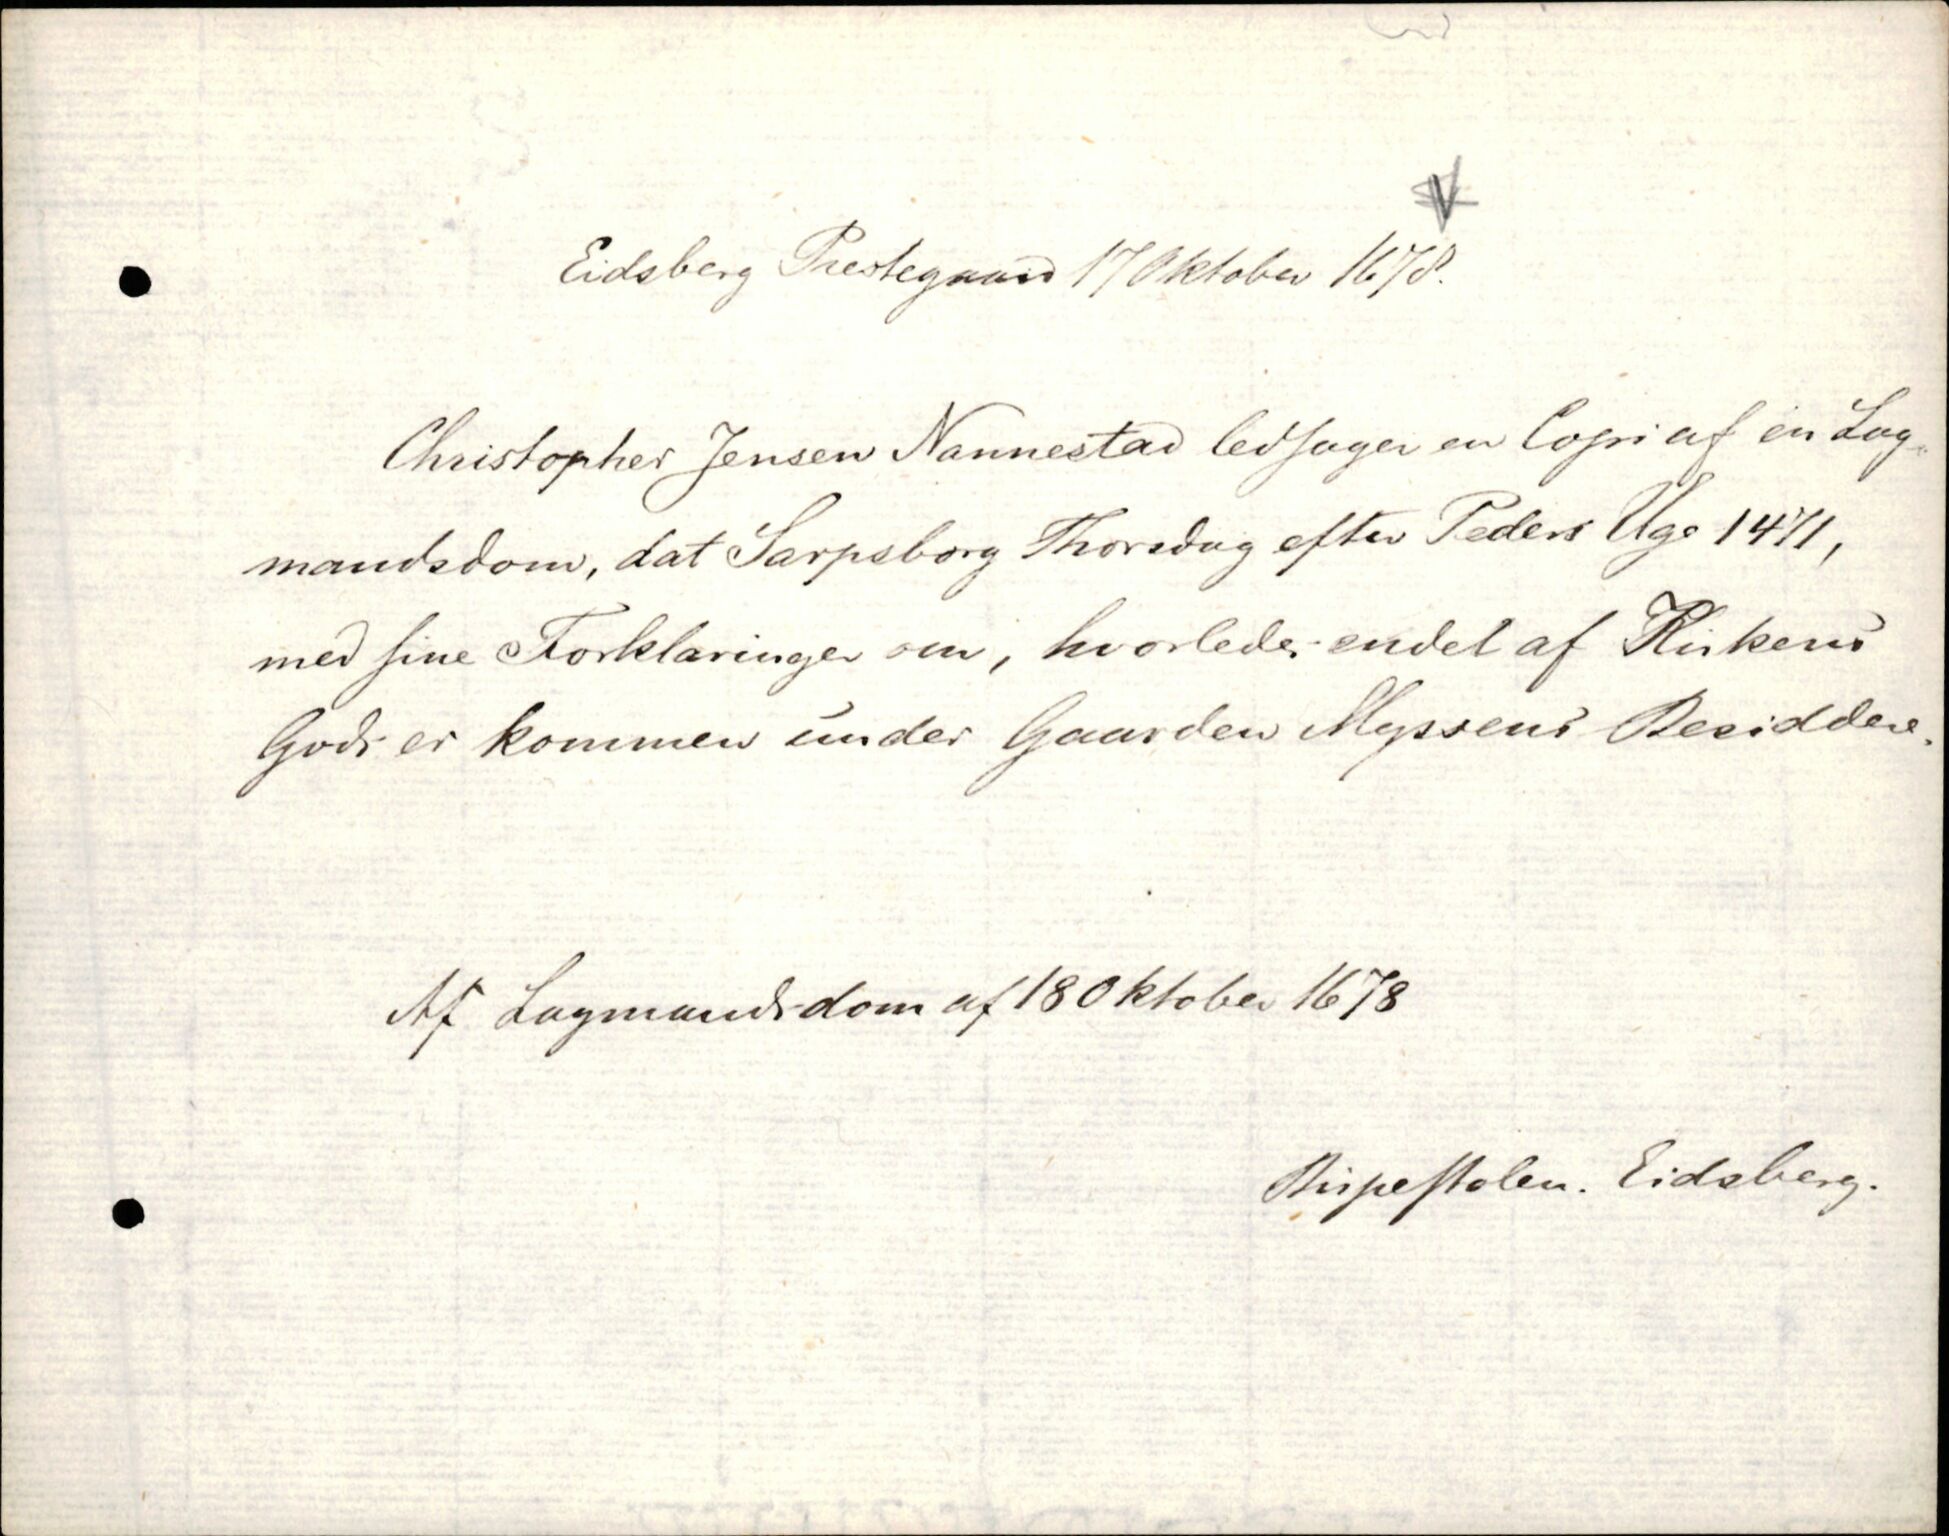 Eidsberg Prestegaard 17 Oktober 1678.
Christopher Jensen Nannestad ledsager en Copi af en Lag-
mandsdom, dat Sarpsborg Thorsdag efter Peders Uge 1471,
med sine Forklaringer om, hvorledes endel af Kirkens
Gods er kommen under Gaarden Myssens Besiddere.
Af Lagmandsdom af 18 Oktober 1678
Bispestolen. Eidsberg.